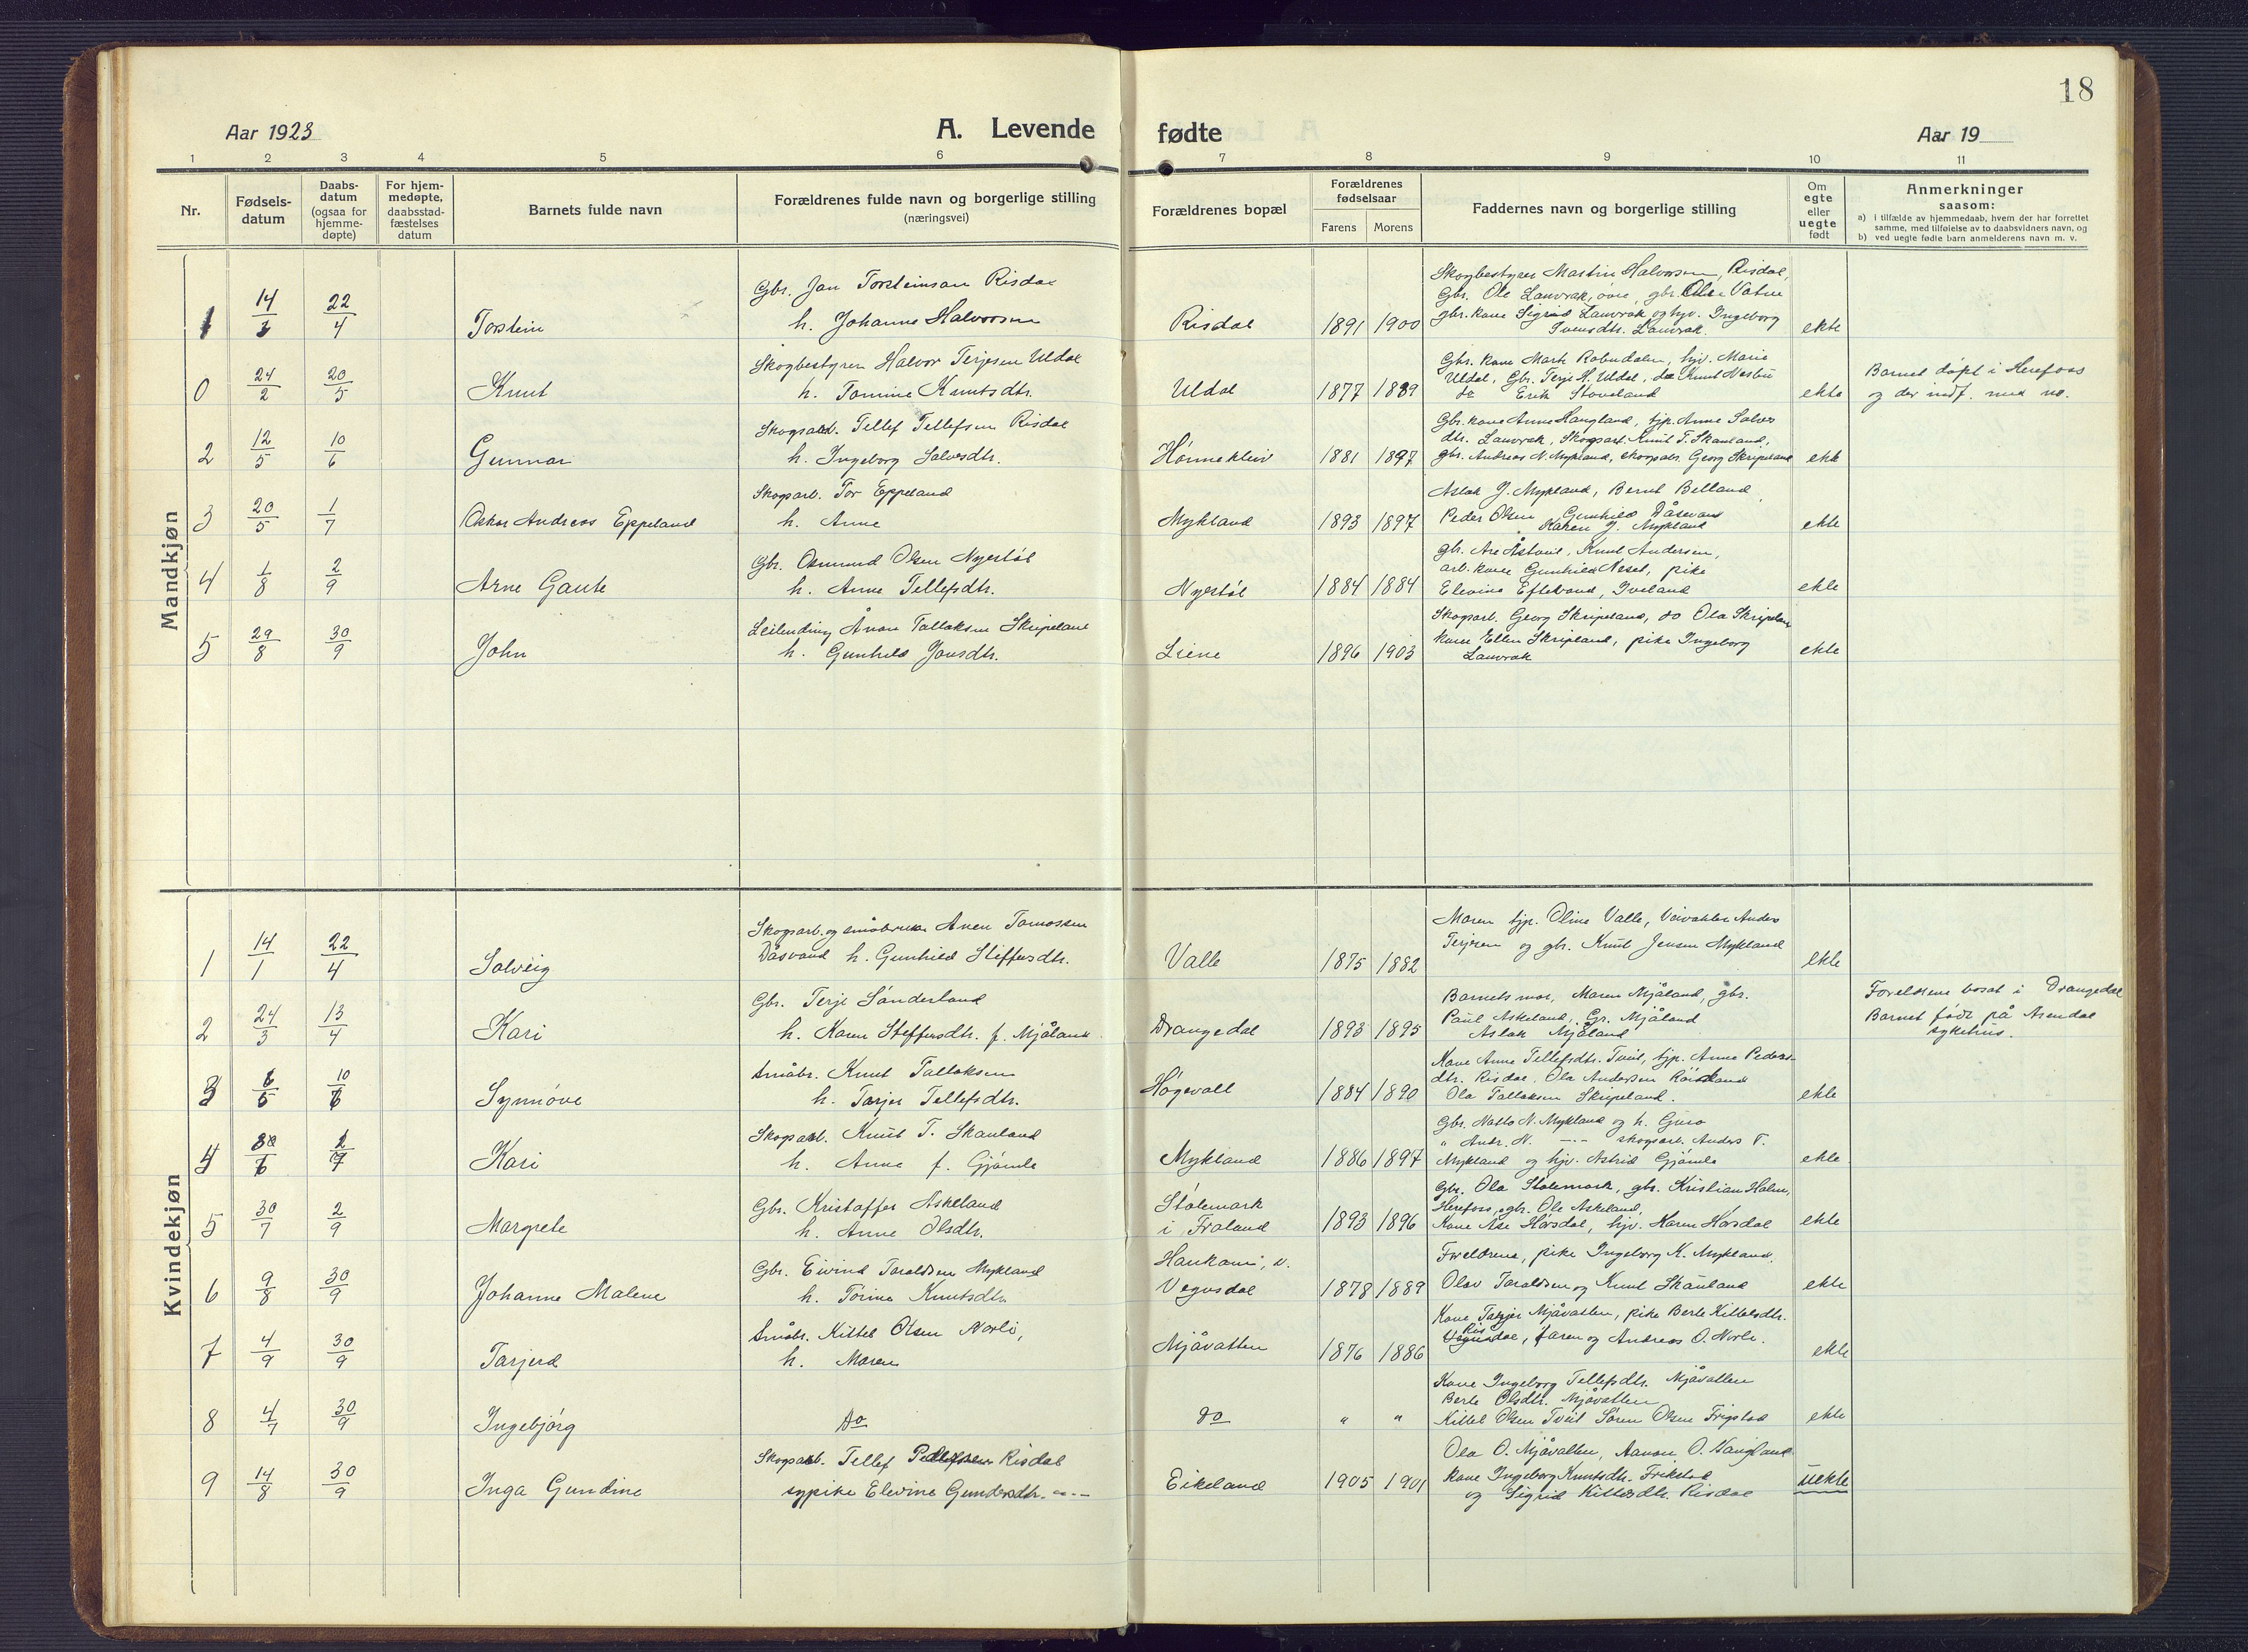 18
Aar 1923
A. Levende fødte
Aar 19
1 2 3 4 5 6 7 8 9 10 11
Nr.
Fødsels-
datum
Daabs-
datum
(ogsaa for
hjemme-
døpte)
For hjem-
medøpte,
daabsstad-
fæstelses
datum
Barnets fulde navn
Forældrenes fulde navn og borgerlige stilling
(næringsvei)
Forældrenes bopæl
Forældrenes
fødselsaar
Farens Morens
Faddernes navn og borgerlige stilling
Om
egte
eller
uegte
født
Anmerkninger
saasom:
a) i tilfælde av hjemmedaab, hvem der har forrettet
samme, med tilføielse av to daabsvidners navn, og
b) ved uegte fødte barn anmelderens navn m. v.
Mandkjøn
1 14/3 22/4 Torstein
Gbr. Jan Torsteinsen Risdal
h. Johanne Halvorsen
Risdal 1891 1900
Skogbestyrer Martin Halvorsen, Risdal,
Gbr. Ole Lauvrak, øvre, gbr. Olav Vatne
gbr. kone Sigrid Lauvrak og hjv. Ingeborg
Svensdtr. Lauvrak.
ekte
0 24/2 20/5 Knut
Skogbestyrer Halvor Terjesen Uldal
h. Tomine Knutsdtr.
Uldal 1877 1889
Gbr. kone Marte Robudalen, hjv. Marie
Uldal, Gbr. Terje H. Uldal, do Knut Næsbu
do Erik Stoveland
ekte
Barnet døpt i Herefoss
og der indf. med no.
2 12/5 10/6 Gunnar
Skogsarb. Tellef Tellefsen Risdal
h. Ingeborg Salvesdtr.
Hønnekleiv 1881 1897
Gbr. kone Anne Haugland, tjp. Anne Salves
dtr. Lauvrak, Skogsarb. Knut T. Skanland,
gbr. Andreas N. Mykland, skogsarb. Georg Skripeland
ekte
3 20/5 1/7 Oskar Andreas Eppeland
Skogsarb. Tor Eppeland
h. Anne
Mykland 1893 1897
Aslak J. Mykland, Bernt Belland,
Peder Olsen Gunhild Dåsvand
Karen J. Mykland
ekte
4 1/8 2/9 Arne Gaute
Gbr. Osmund Olsen Nyestøl
h. Anne Tellefsdtr.
Nyestøl 1884 1884
gbr. Are Åstveit, Knut Andersen,
arb. kone Gunhild Neset, pike
Elevine Eftevand, Iveland
ekte
5 29/8 30/9 John
Leilending Ånon Tallaksen Skripeland
h. Gunhild Jonsdtr.
Liene 1896 1903
Skogsarb. Georg Skripeland, do Ola Skripeland
kone Ellen Skripland, pike Ingeborg
Lauvrak
ekte
Kvindekjøn
1 14/1 22/4 Solveig
Skogsarb. og småbruker Anen Tomassen
Dåsvand h. Gunhild Steffensdtr.
Valle 1875 1882
Moren tjp. Oline Valle, Veivakter Anders
Terjesen og gbr. Knut Jensen Mykland
ekte
2 24/3 13/4 Kari
Gbr. Terje Sønderland
h. Karen Steffensdtr. f. Mjåland
Drangedal 1893 1895
Barnets mor, Maren Mjåland, gbr.
Paul Askeland, Gr. Mjåland
Aslak Mjåland
Foreldrene bosat i Drangedal
Barnet født på Arendal
sykehus.
3 6/5 10/6 Synnøve
Småbr. Knut Tallaksen
h. Tarjer Tellefsdtr.
Høgevall 1884 1890
Kone Anne Tellefsdtr. Tveit, tjp. Anne Peders-
dtr. Risdal, Ola Andersen
Ola Tallaksen Skripeland.
ekte
4 30/6 1/7 Kari
Skogsarb. Knut T. Skanland
h. Anne f. Gjømle
Mykland 1886 1897
Gbr. Natto N. Mykland og h. Guro
" Andr. N. —"— skogsarb. Anders T.
Mykland og hjv. Astrid Gjømle
ekte
5 30/7 2/9 Margrete
Gbr. Kristoffer Askeland
h. Anne Olsdtr.
Stølemark
i Froland
1893 1896
Gbr. Ola Stølemark, gbr. Kristian Holm,
Herefoss, gbr. Ole Askeland,
Kone Åse Høsdal, hjv. Karen Høsdal
ekte
6 9/8 30/9 Johanne Malene
Gbr. Eivind Taraldsen Mykland
h. Torine Knutsdtr.
Haukom, v.
Vegusdal
1878 1889
Foreldrene, pike Ingeborg K. Mykland,
Olav Taraldsen og Knut Skånland
ekte
7 4/9 30/9 Tarjerd
Småbr. Kittel Olsen Norli,
h. Maren
Mjåvatten 1876 1886
Kone Tarjer Mjåvatten, pike Berte Kittelsdtr.
Risdal, faren og Andreas O. Norli.
ekte
8 4/7 30/9 Ingebjørg
do
do " "
Kone Ingeborg Tellefsdtr. Mjåvatten
Berte Olsdtr. Mjåvatten
Kittel Olsen Tveit Søren Olsen Frigstad
ekte
9 14/8 30/9 Inga Gundine
Skogsarb. Tellef Pedersen Risdal
sypike Elevine Gundersdtr. —"—
Eikeland 1905 1901
Ola O. Mjåvatten, Aanon O. Haugland
kone Ingeborg Knutsdtr. Frikstad
og Sigrid Kittelsdtr. Risdal
uekte